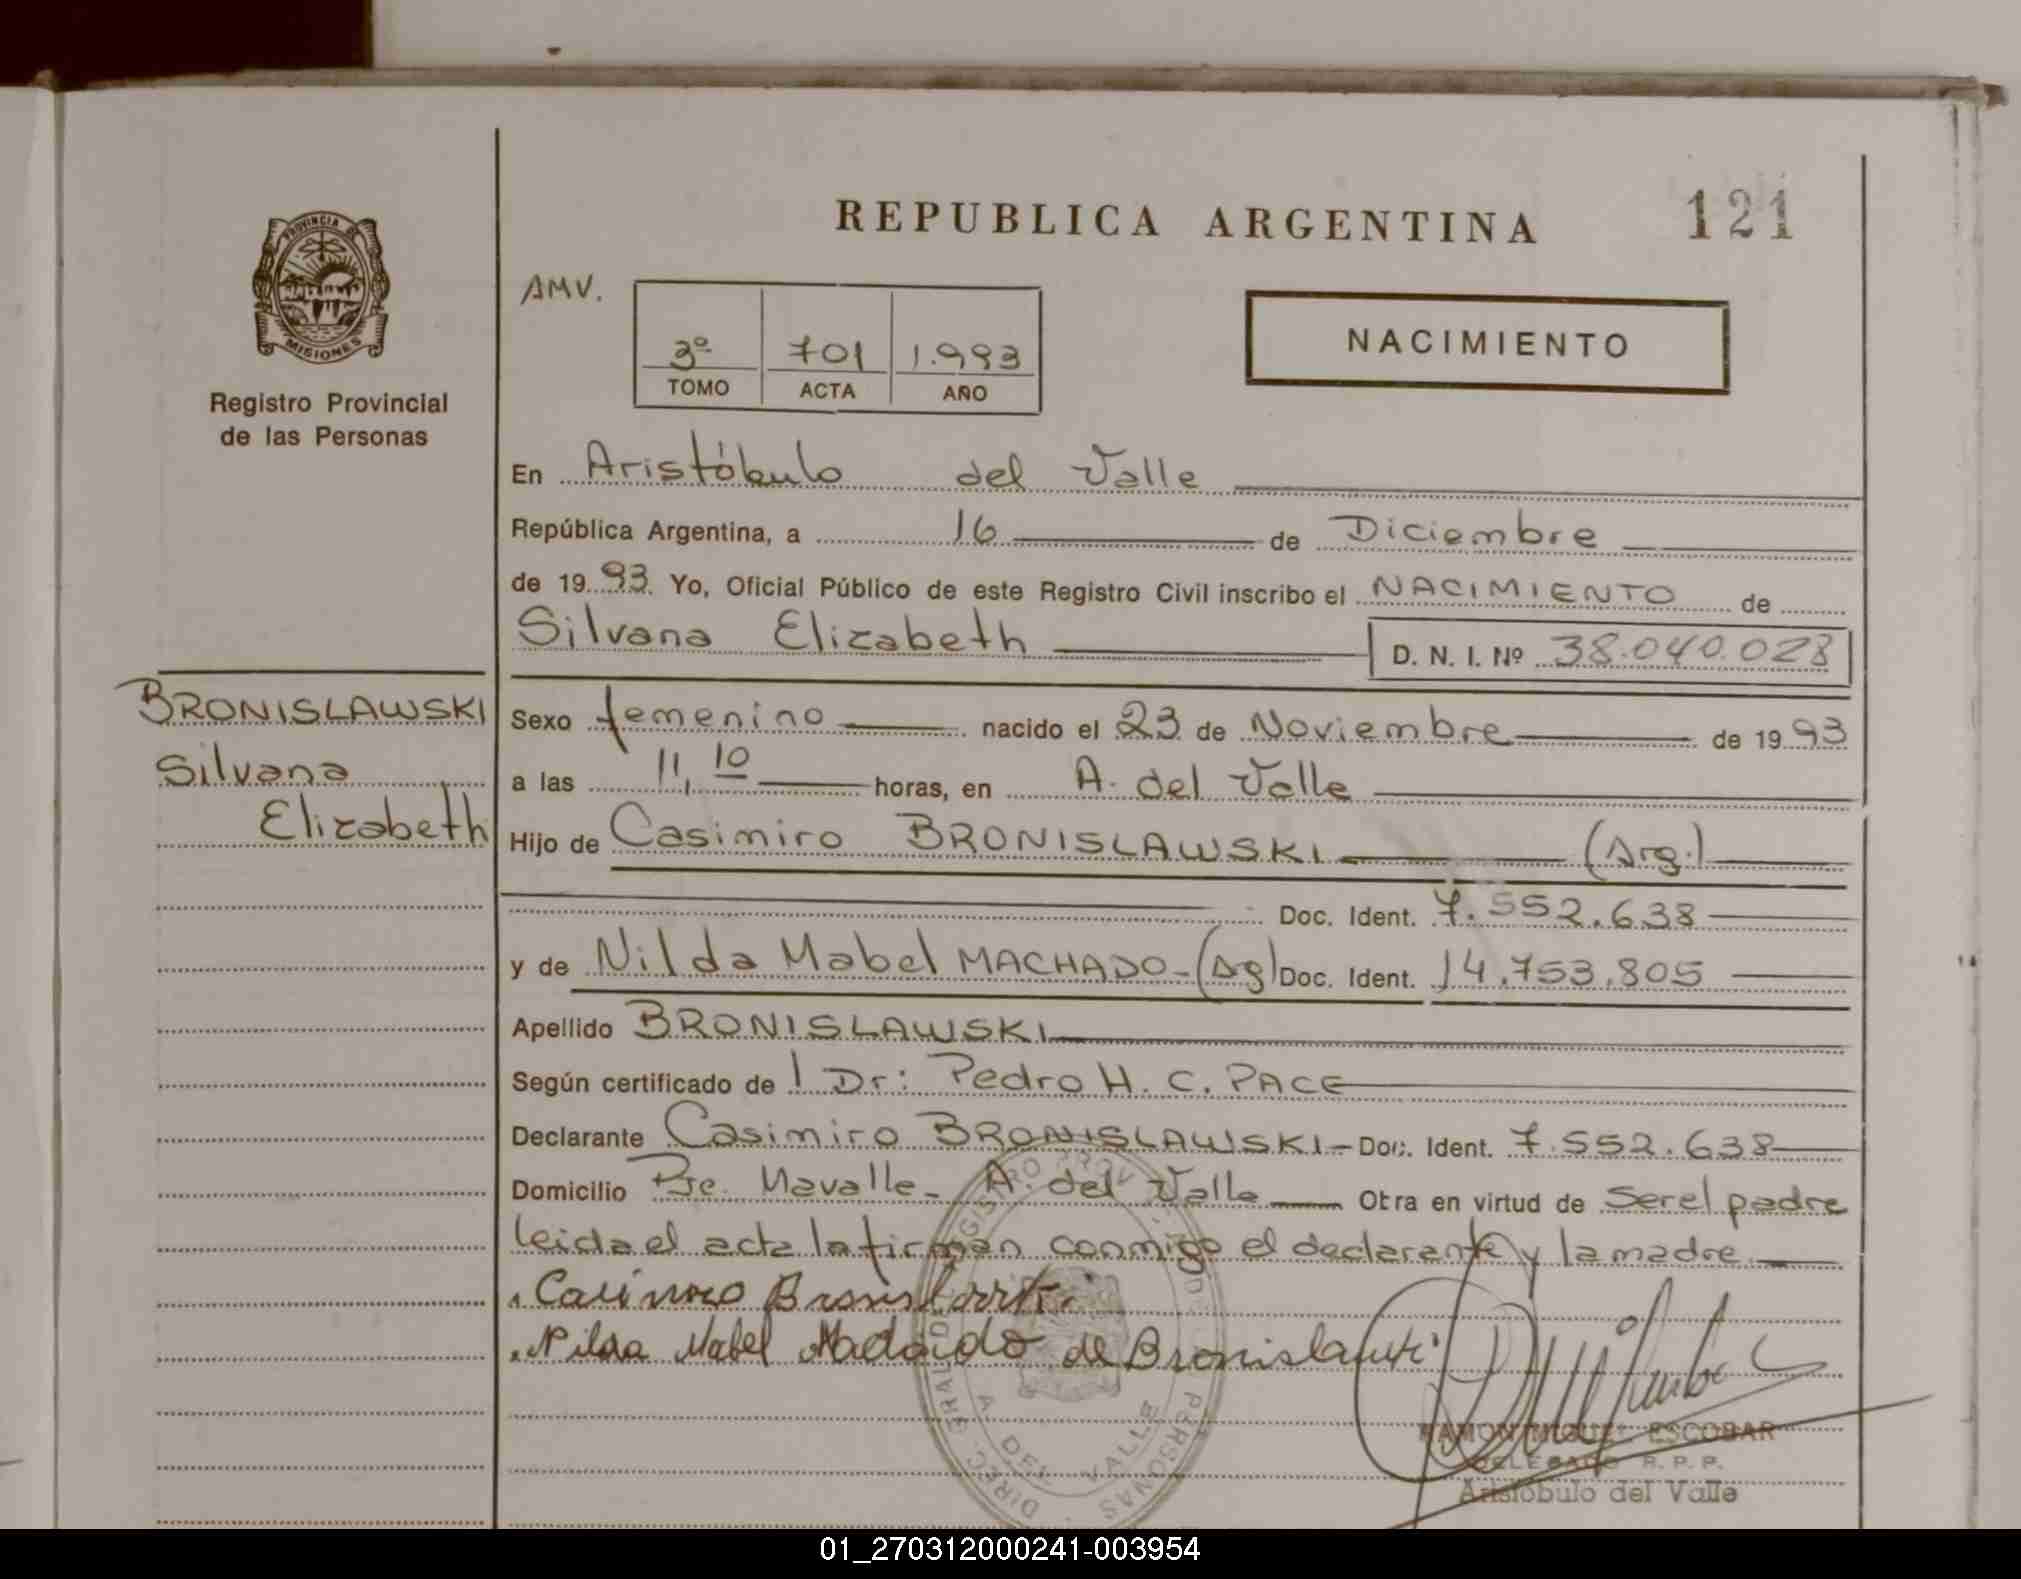 REPUBLICA ARGENTINA
121
PROVINCIA DE
MISIONES
Registro Provincial
de las Personas
AMV.
3º 701 1.993
TOMO ACTA AÑO
NACIMIENTO
En Aristóbulo del Valle
República Argentina, a 16 de Diciembre
de 1993. Yo, Oficial Público de este Registro Civil inscribo el NACIMIENTO de
Silvana Elizabeth D. N. I. Nº 38.040.028
BRONISLAWSKI
Silvana
Elizabeth
Sexo femenino nacido el 23 de Noviembre de 1993
a las 11,10 horas, en A. del Valle
Hijo de Casimiro BRONISLAWSKI (Arg.)
Doc. Ident. 7.552.638
y de Nilda Mabel MACHADO - (Ag) Doc. Ident. 14.753.805
Apellido BRONISLAWSKI
Según certificado de Dr: Pedro H. C. PACE
Declarante Casimiro BRONISLAWSKI - Doc. Ident. 7.552.638
Domicilio Pje. Mavalle - A. del Valle Otra en virtud de ser el padre
leida el acta la firman conmigo el declarante y la madre.
Nilda Mabel de
A. DEL VALLE
RAMON MIGUEL ESCOBAR
DELEGADO R. P. P.
Aristóbulo del Valle
01_270312000241-003954